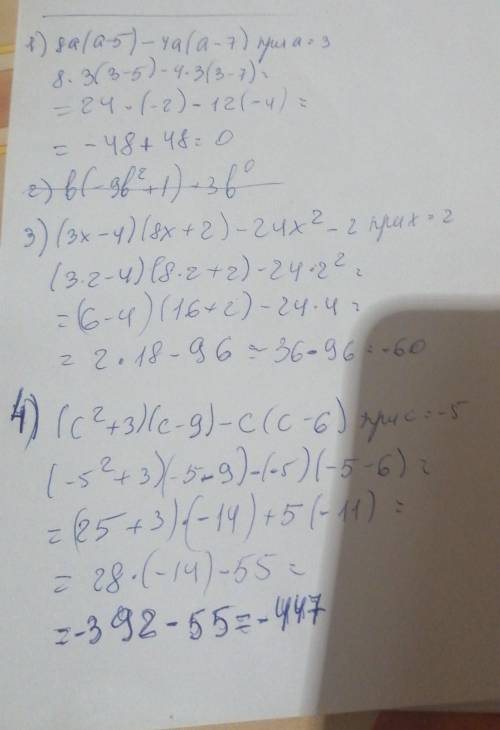 1) 8a(a-5)-4a(a-7) при a=3
8·3(3-5)-4·3(3-7)=
=24·(-2)-12(-4)=
=-48+48=0
2) b(-9b²+1)-3b⁰
3) (3x-4)(8x+2)-24x²-2 при x=2
(3·2-4)(8·2+2)-24·2²=
=(6-4)(16+2)-24·4=
=2·18-96=36-96=-60
4) (c²+3)(c-9)-c(c-6) при c=-5
(-5²+3)(-5-9)-(-5)(-5-6)=
=(25+3)·(-14)+5(-11)=
=28·(-14)-55=
=-392-55=-447